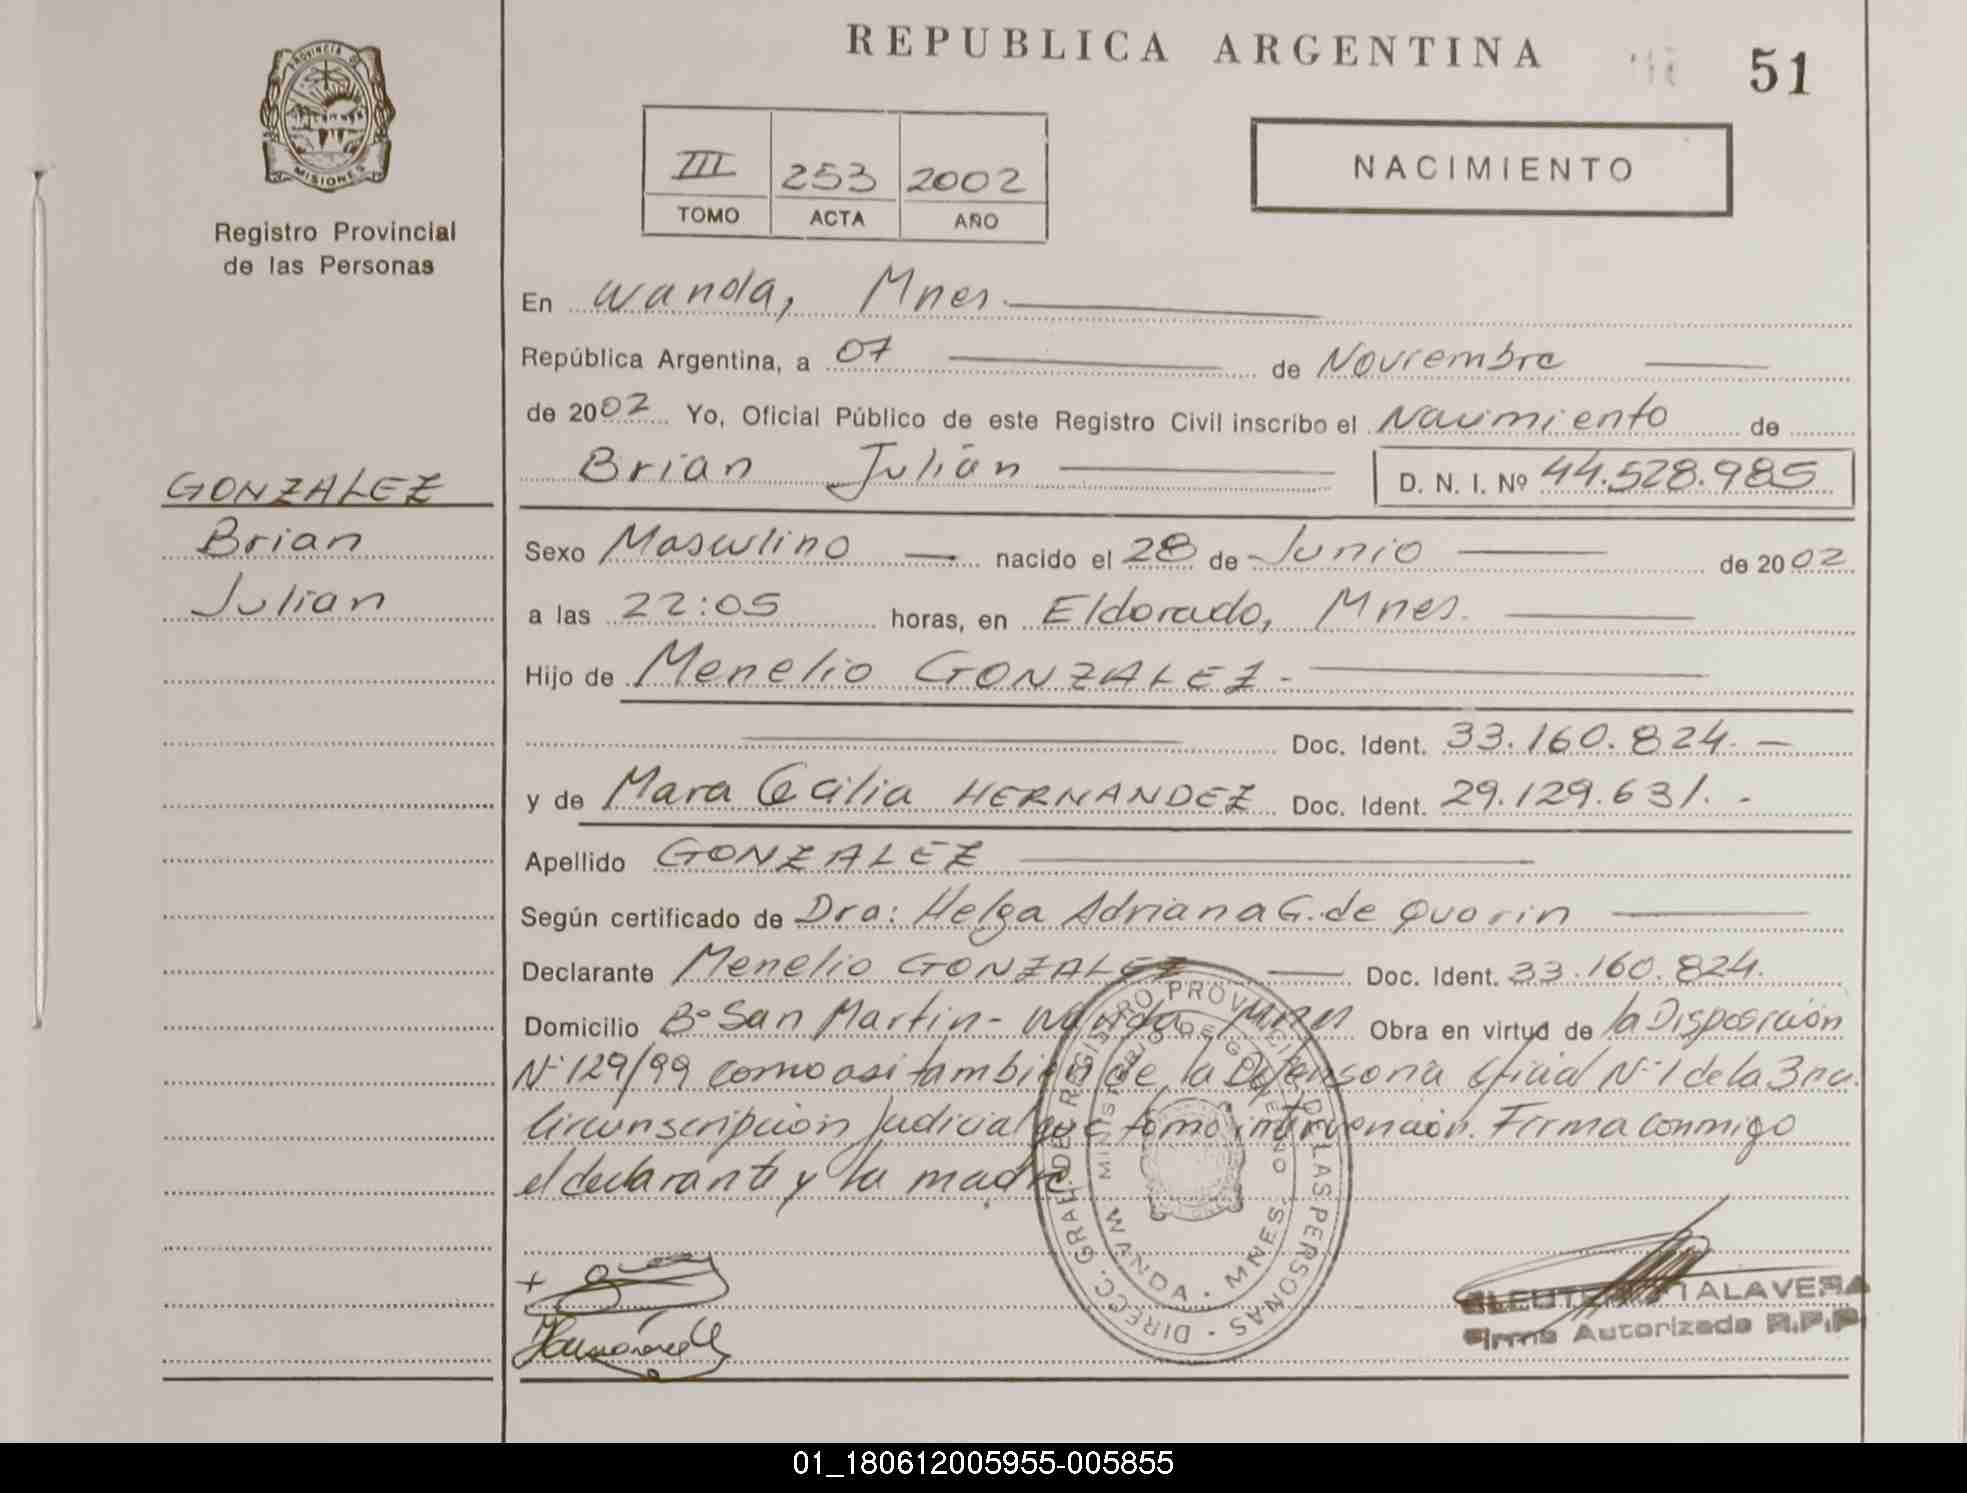 REPUBLICA ARGENTINA
51
PROVINCIA DE
MISIONES
Registro Provincial
de las Personas
III 253 2002
TOMO ACTA AÑO
NACIMIENTO
En Wanda, Mnes.
República Argentina, a 07 de Noviembre
de 2002 Yo, Oficial Público de este Registro Civil inscribo el Nacimiento de
Brian Julián D. N. I. Nº 44.528.985
GONZALEZ
Brian
Julian
Sexo Masculino nacido el 28 de Junio de 2002
a las 22:05 horas, en Eldorado, Mnes.
Hijo de Menelio GONZALEZ.-
Doc. Ident. 33.160.824.-
y de Mara Cecilia HERNANDEZ Doc. Ident. 29.129.631.-
Apellido GONZALEZ
Según certificado de Dra: Helga Adriana G. de Quarin
Declarante Menelio GONZALEZ Doc. Ident. 33.160.824.
Domicilio Bº San Martin - Wanda Mnes Obra en virtud de la Disposición
Nº 129/99 como asi tambien de la Defensoria Oficial Nº 1 de la 3ra.
Circunscripción Judicial que tomo intervención. Firma conmigo
el declarante y la madre.
DIRECC. GRAL. DE REGISTRO PROVINCIAL DE LAS PERSONAS
MINISTERIO DE GOBIERNO
WANDA - MNES.
ELEUTERIO TALAVERA
Firma Autorizada R.P.P.
01_180612005955-005855